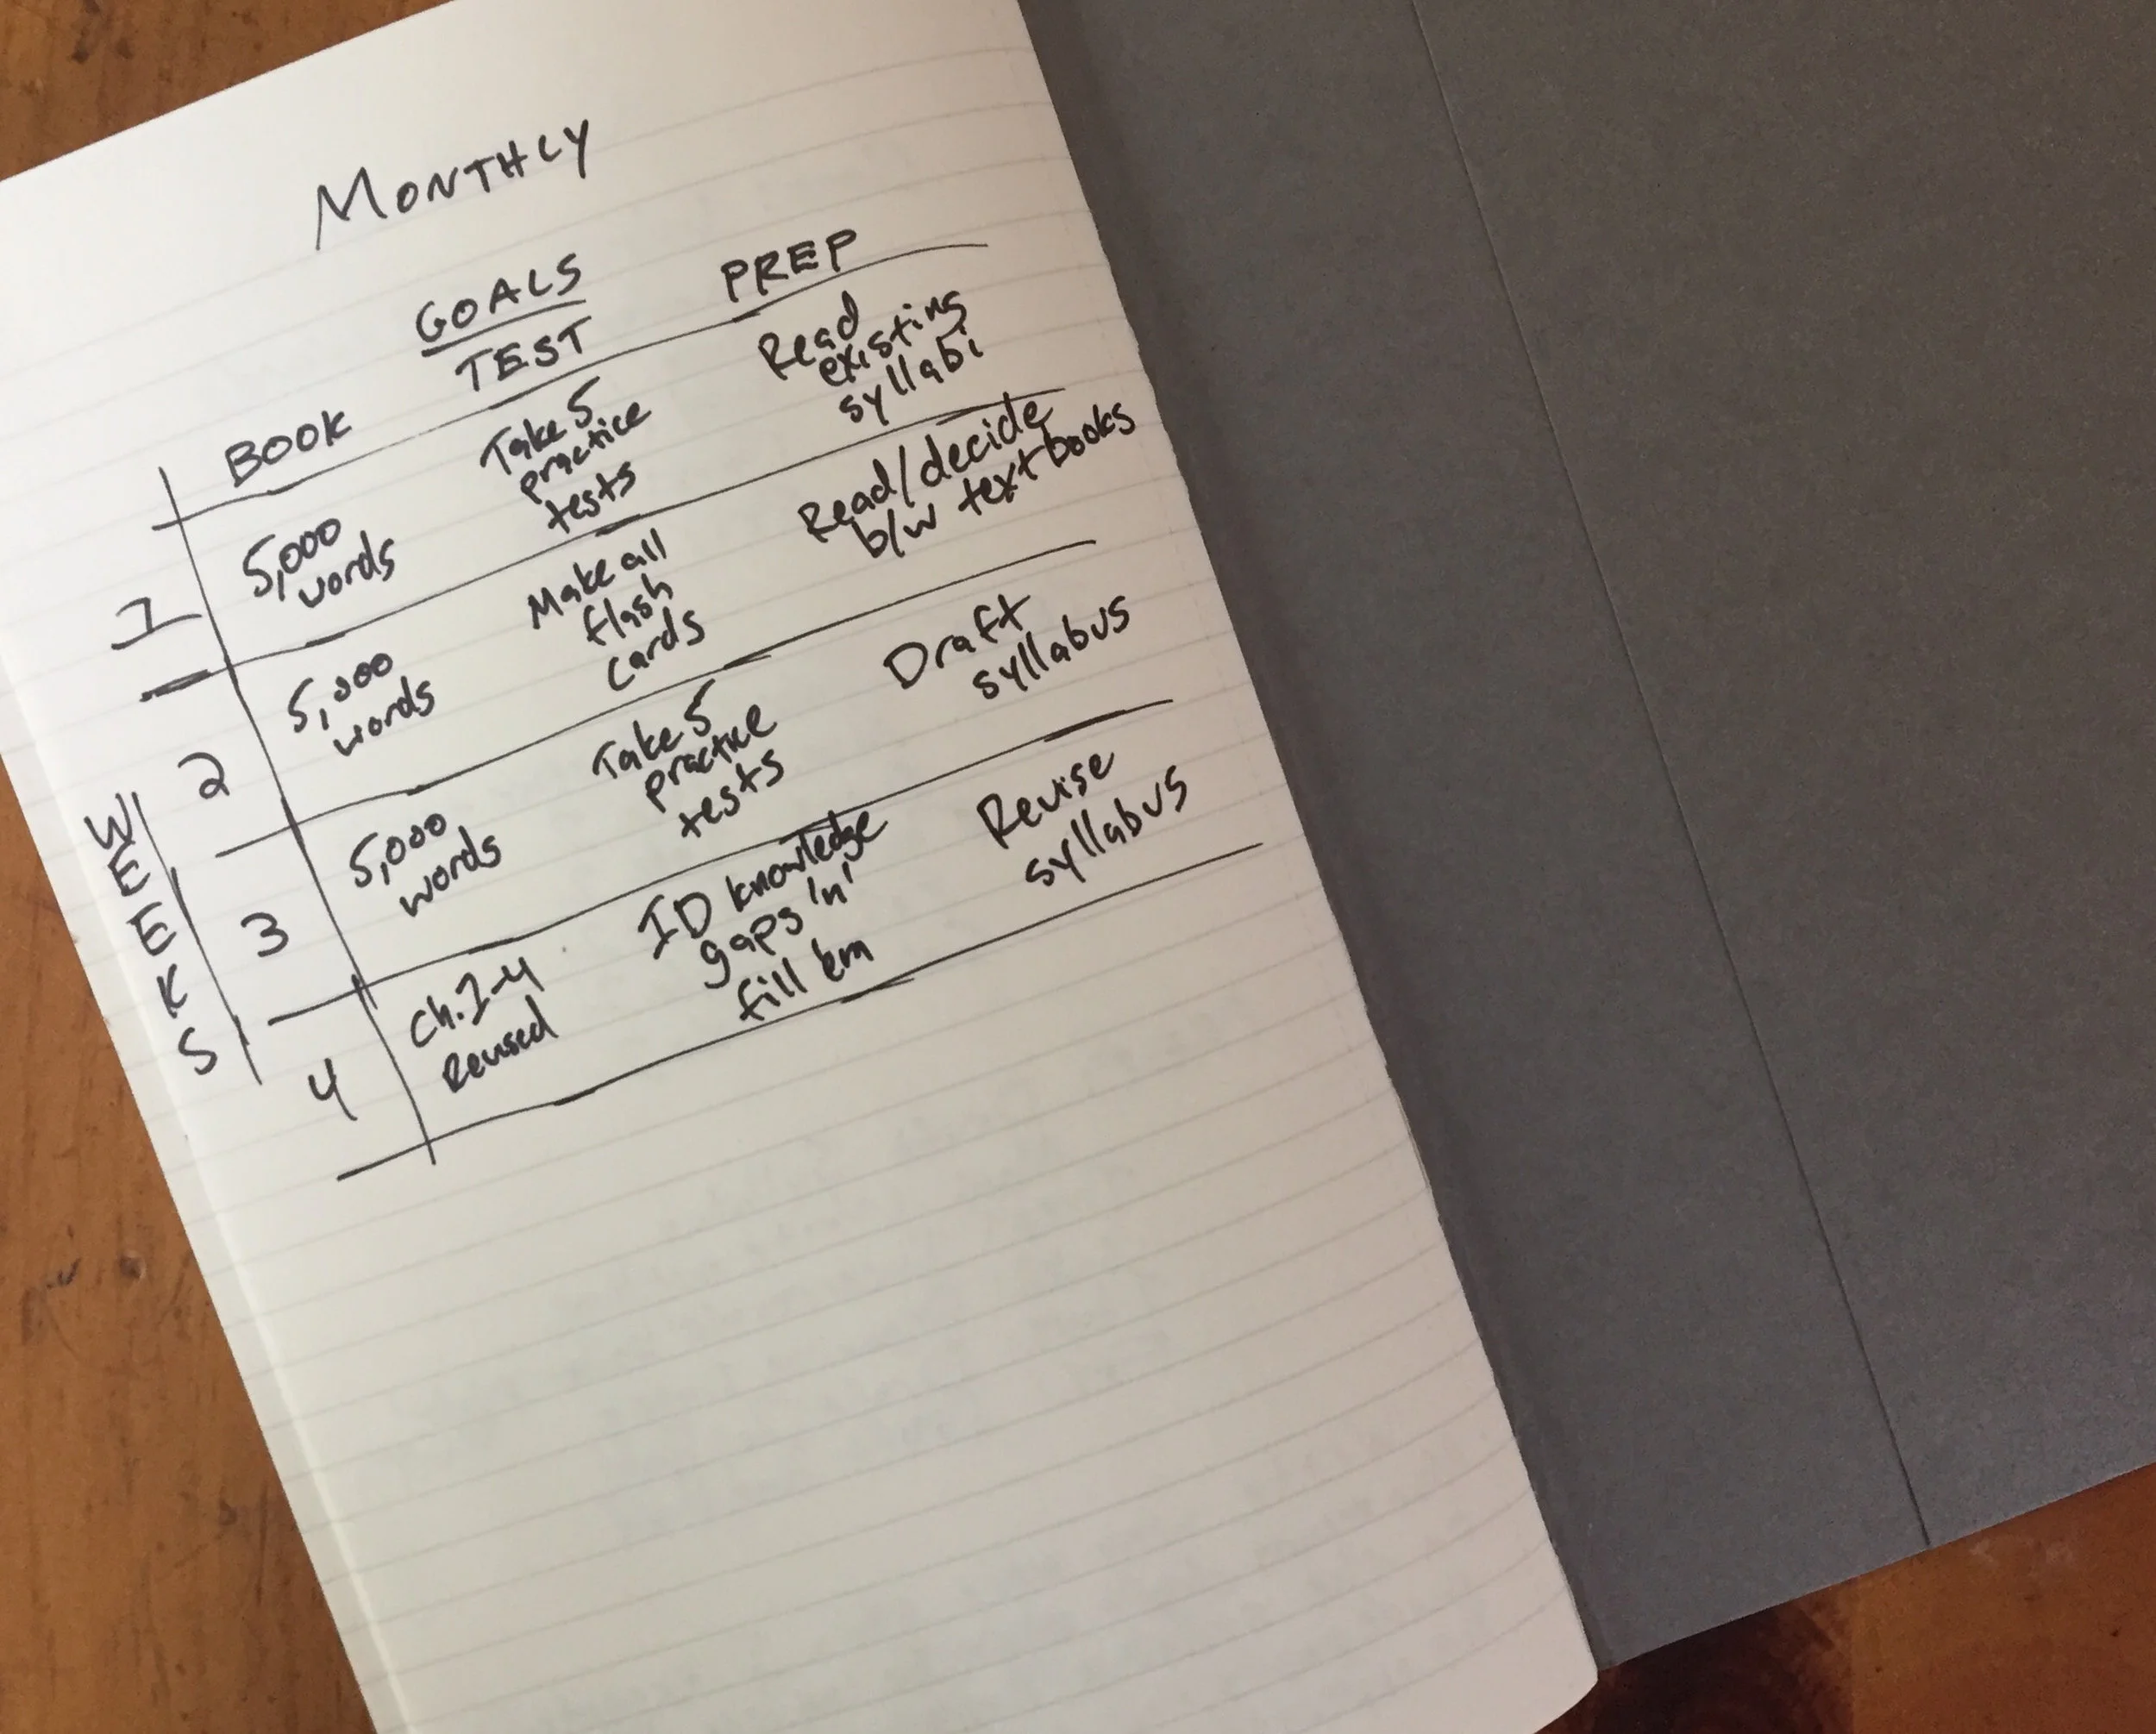 MONTHLY
GOALS
BOOK TEST PREP
WEEKS
1
5,000
words
Take 5
practice
tests
Read
existing
syllabi
2
5,000
words
Make all
flash
cards
Read/decide
b/w textbooks
3
5,000
words
Take 5
practice
tests
Draft
syllabus
4
Ch. 1-4
Revised
ID knowledge
gaps 'n'
fill 'em
Revise
syllabus